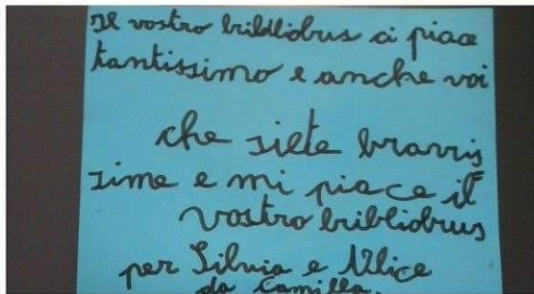 Il vostro bribliobrus ci piace
tantissimo e anche voi
che siete bravis
sime e mi piace il
vostro bribliobrus
per Silvia e Alice
da Camilla.